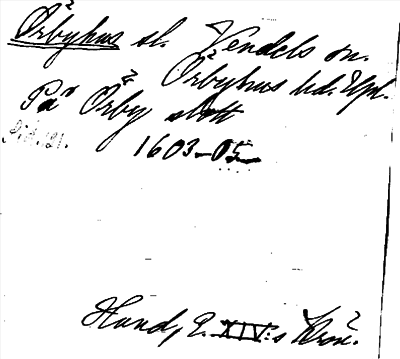 Örbyhus sl. Vendels sn.
Örbyhus hd. Upl.
På Örby slott
1603-05
Hand. E. XIV:s Kron.